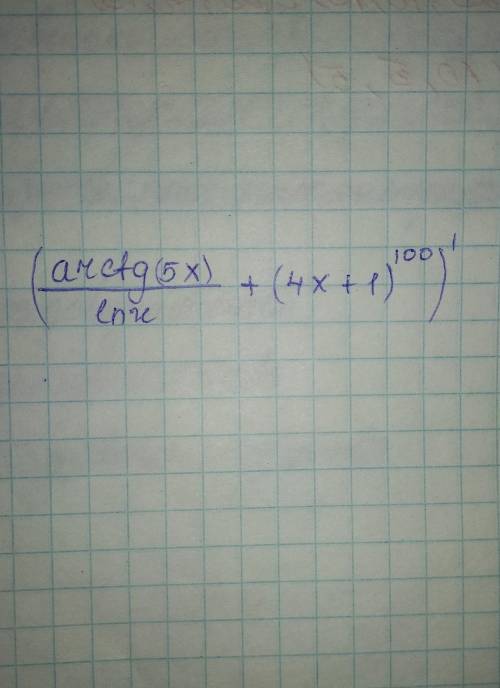 (arctg(5x)/lnx + (4x+1)^100)'